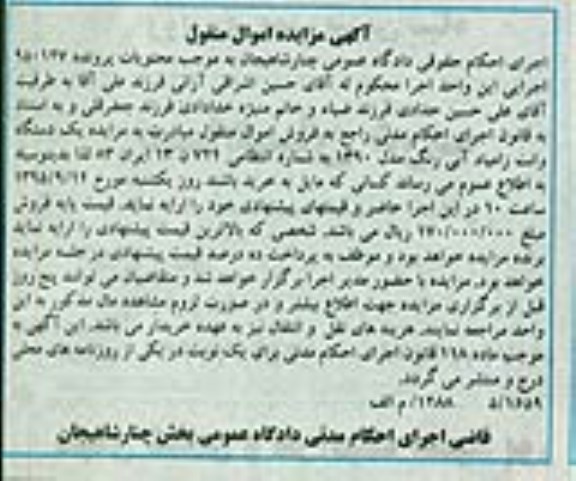 آگهی مزایده اموال منقول
اجرای احکام حقوقی دادگاه عمومی چنارشاهیجان به موجب محتویات پرونده ۹۵۰۱۲۷
اجرایی این واحد اجرا محکوم له آقای حسین اشراقی آرانی فرزند علی آقا به طرفیت
آقای علی حسین حدادی فرزند ضیاء و خانم منیژه خدادادی فرزند جعفرقلی و به استناد
به قانون اجرای احکام مدنی راجع به فروش اموال منقول مبادرت به مزایده یک دستگاه
وانت زامیاد آبی رنگ مدل ۱۳۹۰ به شماره انتظامی ۷۲۲ ن ۱۳ ایران ۵۳ لذا بدینوسیله
به اطلاع عموم می رساند کسانی که مایل به خرید باشند روز یکشنبه مورخ ۱۳۹۵/۹/۱۴
ساعت ۱۰ در این اجرا حاضر و قیمتهای پیشنهادی خود را ارایه نماید. قیمت پایه فروش
مبلغ ۱۷۰/۰۰۰/۰۰۰ ریال می باشد. شخصی که بالاترین قیمت پیشنهادی را ارایه نماید
برنده مزایده خواهد بود و موظف به پرداخت ده درصد قیمت پیشنهادی در جلسه مزایده
خواهد بود. مزایده با حضور مدیر اجرا برگزار خواهد شد و متقاضیان می توانند پنج روز
قبل از برگزاری مزایده جهت اطلاع بیشتر و در صورت لزوم مشاهده مال مذکور به این
واحد مراجعه نمایند. هزینه های نقل و انتقال نیز به عهده خریدار می باشد. این آگهی به
موجب ماده ۱۱۸ قانون اجرای احکام مدنی برای یک نوبت در یکی از روزنامه های محلی
درج و منتشر می گردد.
۵/۱۶۵۹ ۱۲۸۸/م الف
قاضی اجرای احکام مدنی دادگاه عمومی بخش چنارشاهیجان